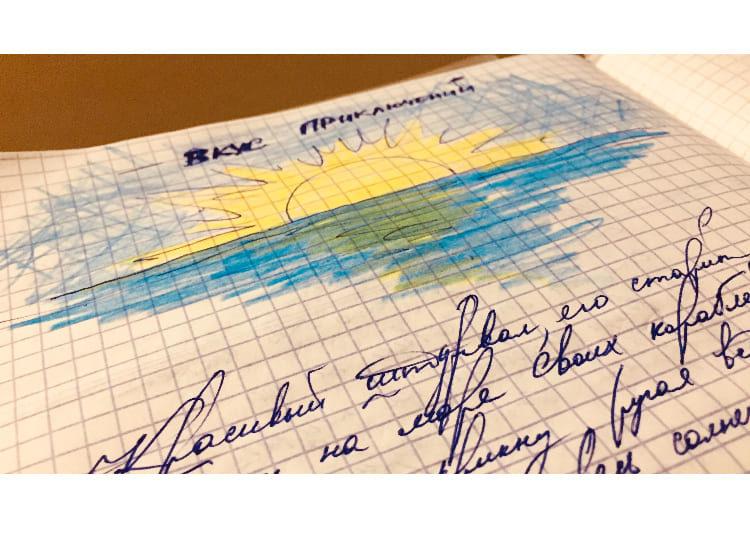 ВКУС ПРИКЛЮЧЕНИЙ
Красивый штурвал, его ставит
на море своих корабле
ругая
солне